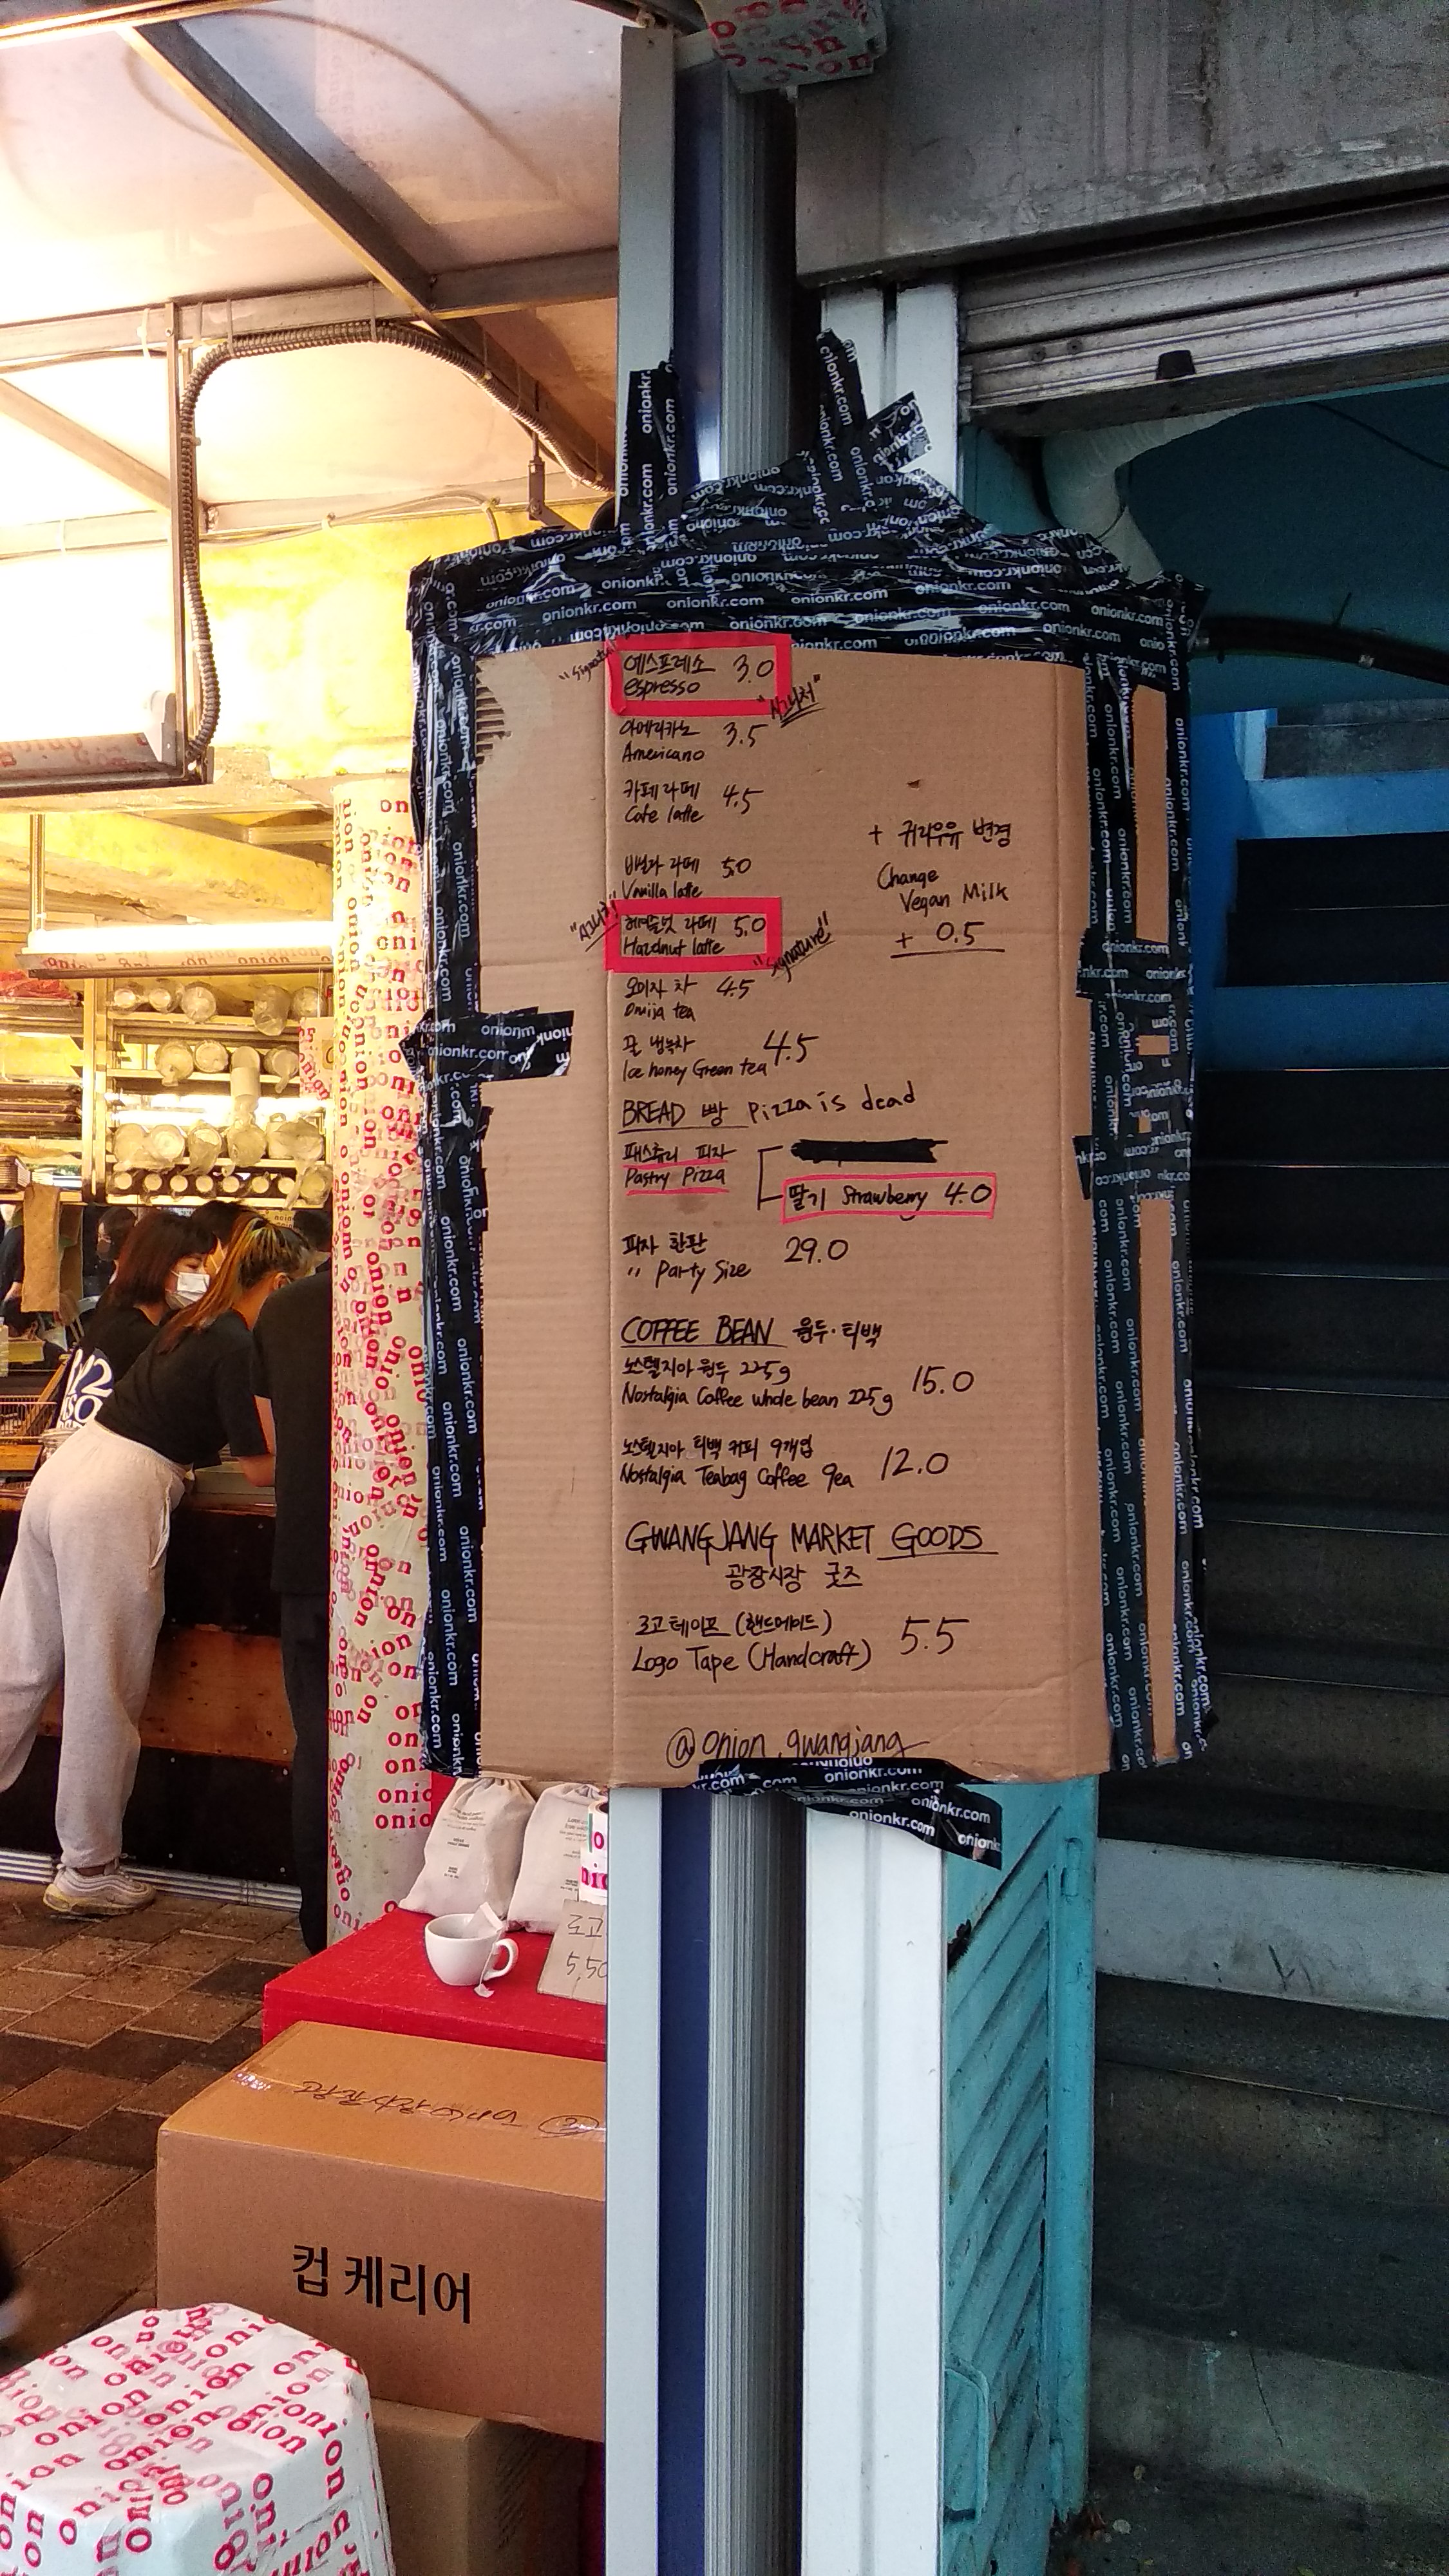 "Signatu
에스프레소 3.0
espresso
"시그니처"
아메리카노 3.5
Americano
카페 라떼 4.5
Cafe latte
+ 귀리우유 변경
Change
Vegan Milk
+ 0.5
바닐라 라떼 5.0
Vanilla latte
"시그니처"
헤이즐넛 라떼 5.0
Hazelnut latte
"Signature"
오미자 차 4.5
Omija tea
꿀 냉녹차 4.5
Ice honey Green tea
BREAD 빵 Pizza is dead
패스츄리 피자
Pastry Pizza
딸기 Strawberry 4.0
피자 한판 29.0
" Party Size
COFFEE BEAN 원두·티백
노스텔지아 원두 225g
Nostalgia Coffee whole bean 225g 15.0
노스텔지아 티백 커피 9개입
Nostalgia Teabag Coffee 9ea 12.0
GWANGJANG MARKET GOODS
광장시장 굿즈
로고 테이프 (핸드메이드)
Logo Tape (Handcraft) 5.5
@onion.gwangjang
onionkr.com
onion
로고
5.50
컵 케리어